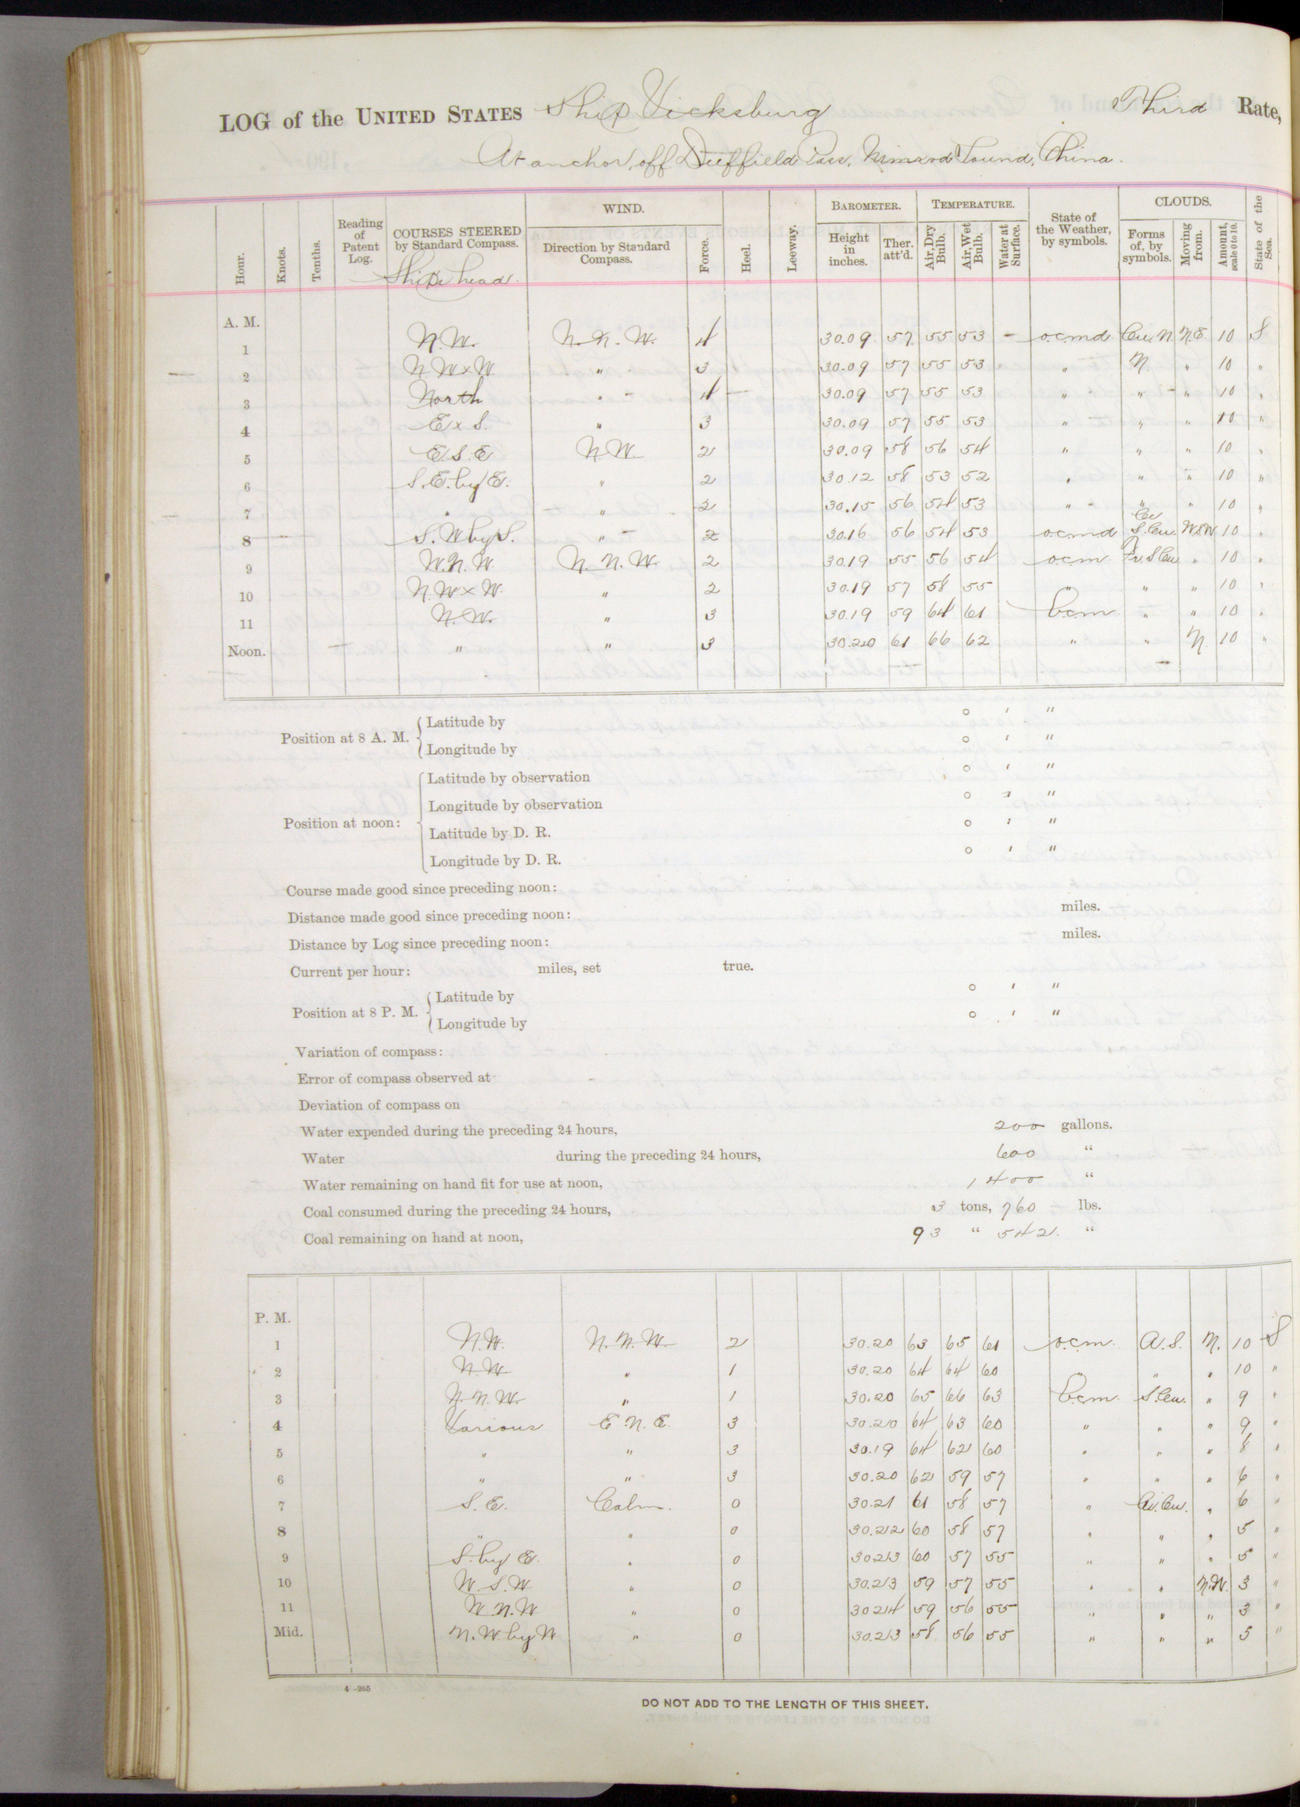 LOG of the UNITED STATES Ship Vicksburg Third Rate,
At anchor, off Duffield Pass, Nimrod Sound, China.
Hour. Knots. Tenths. Reading of Patent Log. COURSES STEERED by Standard Compass. WIND. Direction by Standard Compass. Force. Heel. Leeway. BAROMETER. Height in inches. Ther. att'd. TEMPERATURE. Air, Dry Bulb. Air, Wet Bulb. Water at Surface. State of the Weather, by symbols. CLOUDS. Forms of, by symbols. Moving from. Amount, scale 0 to 10. State of the Sea.
Ship's head.
A. M.
1 N.W. N.N.W. 4 30.09 57 55 53 - o.c.m.d Cu. N N.E. 10 S
2 N W x W " 3 30.09 57 55 53 " N " 10 "
3 North " 4 30.09 57 55 53 " " " 10 "
4 E x S. " 3 30.09 57 55 53 " " " 10 "
5 E.S.E N.W. 2 30.09 58 56 54 " " " 10 "
6 S.E. by E. " 2 30.12 58 53 52 " " " 10 "
7 " " 2 30.15 56 54 53 " " " 10 "
8 S.W by S. " 2 30.16 56 54 53 o.c.m.d Cu S.Cu. W.S.W 10 "
9 W.N.W N.N.W. 2 30.19 55 56 54 o.c.m S.Cu " 10 "
10 N.W x W. " 2 30.19 57 58 55 " " " 10 "
11 N.W. " 3 30.19 59 64 61 b.c.m " " 10 "
Noon. " " 3 30.20 61 66 62 " " N. 10 "
Position at 8 A. M. Latitude by ° ′ ″
Longitude by ° ′ ″
Position at noon: Latitude by observation ° ′ ″
Longitude by observation ° ′ ″
Latitude by D. R. ° ′ ″
Longitude by D. R. ° ′ ″
Course made good since preceding noon:
Distance made good since preceding noon: miles.
Distance by Log since preceding noon: miles.
Current per hour: miles, set true.
Position at 8 P. M. Latitude by ° ′ ″
Longitude by ° ′ ″
Variation of compass:
Error of compass observed at
Deviation of compass on
Water expended during the preceding 24 hours, 200 gallons.
Water during the preceding 24 hours, 600 "
Water remaining on hand fit for use at noon, 1400 "
Coal consumed during the preceding 24 hours, 3 tons, 760 lbs.
Coal remaining on hand at noon, 93 " 542. "
P. M.
1 N.W. N.N.W. 2 30.20 63 65 61 o.c.m. A.S. N. 10 S
2 N.W. " 1 30.20 64 64 60 " " 10 "
3 N.N.W. " 1 30.20 65 66 63 b.c.m. S.Cu. " 9 "
4 Various E.N.E. 3 30.20 64 63 60 " " " 9 "
5 " " 3 30.19 64 62 60 " " " 8 "
6 " " 3 30.20 62 59 57 " " " 6 "
7 S.E. Calm. 0 30.21 61 58 57 " Ci.Cu. " 6 "
8 " " 0 30.22 60 58 57 " " " 5 "
9 S. by E. " 0 30.23 60 57 55 " " " 5 "
10 W.S.W " 0 30.23 59 57 55 " " N.W. 3 "
11 W.N.W " 0 30.24 59 56 55 " " " 3 "
Mid. N.W. by W " 0 30.23 58 56 55 " " " 5 "
4—265
DO NOT ADD TO THE LENGTH OF THIS SHEET.